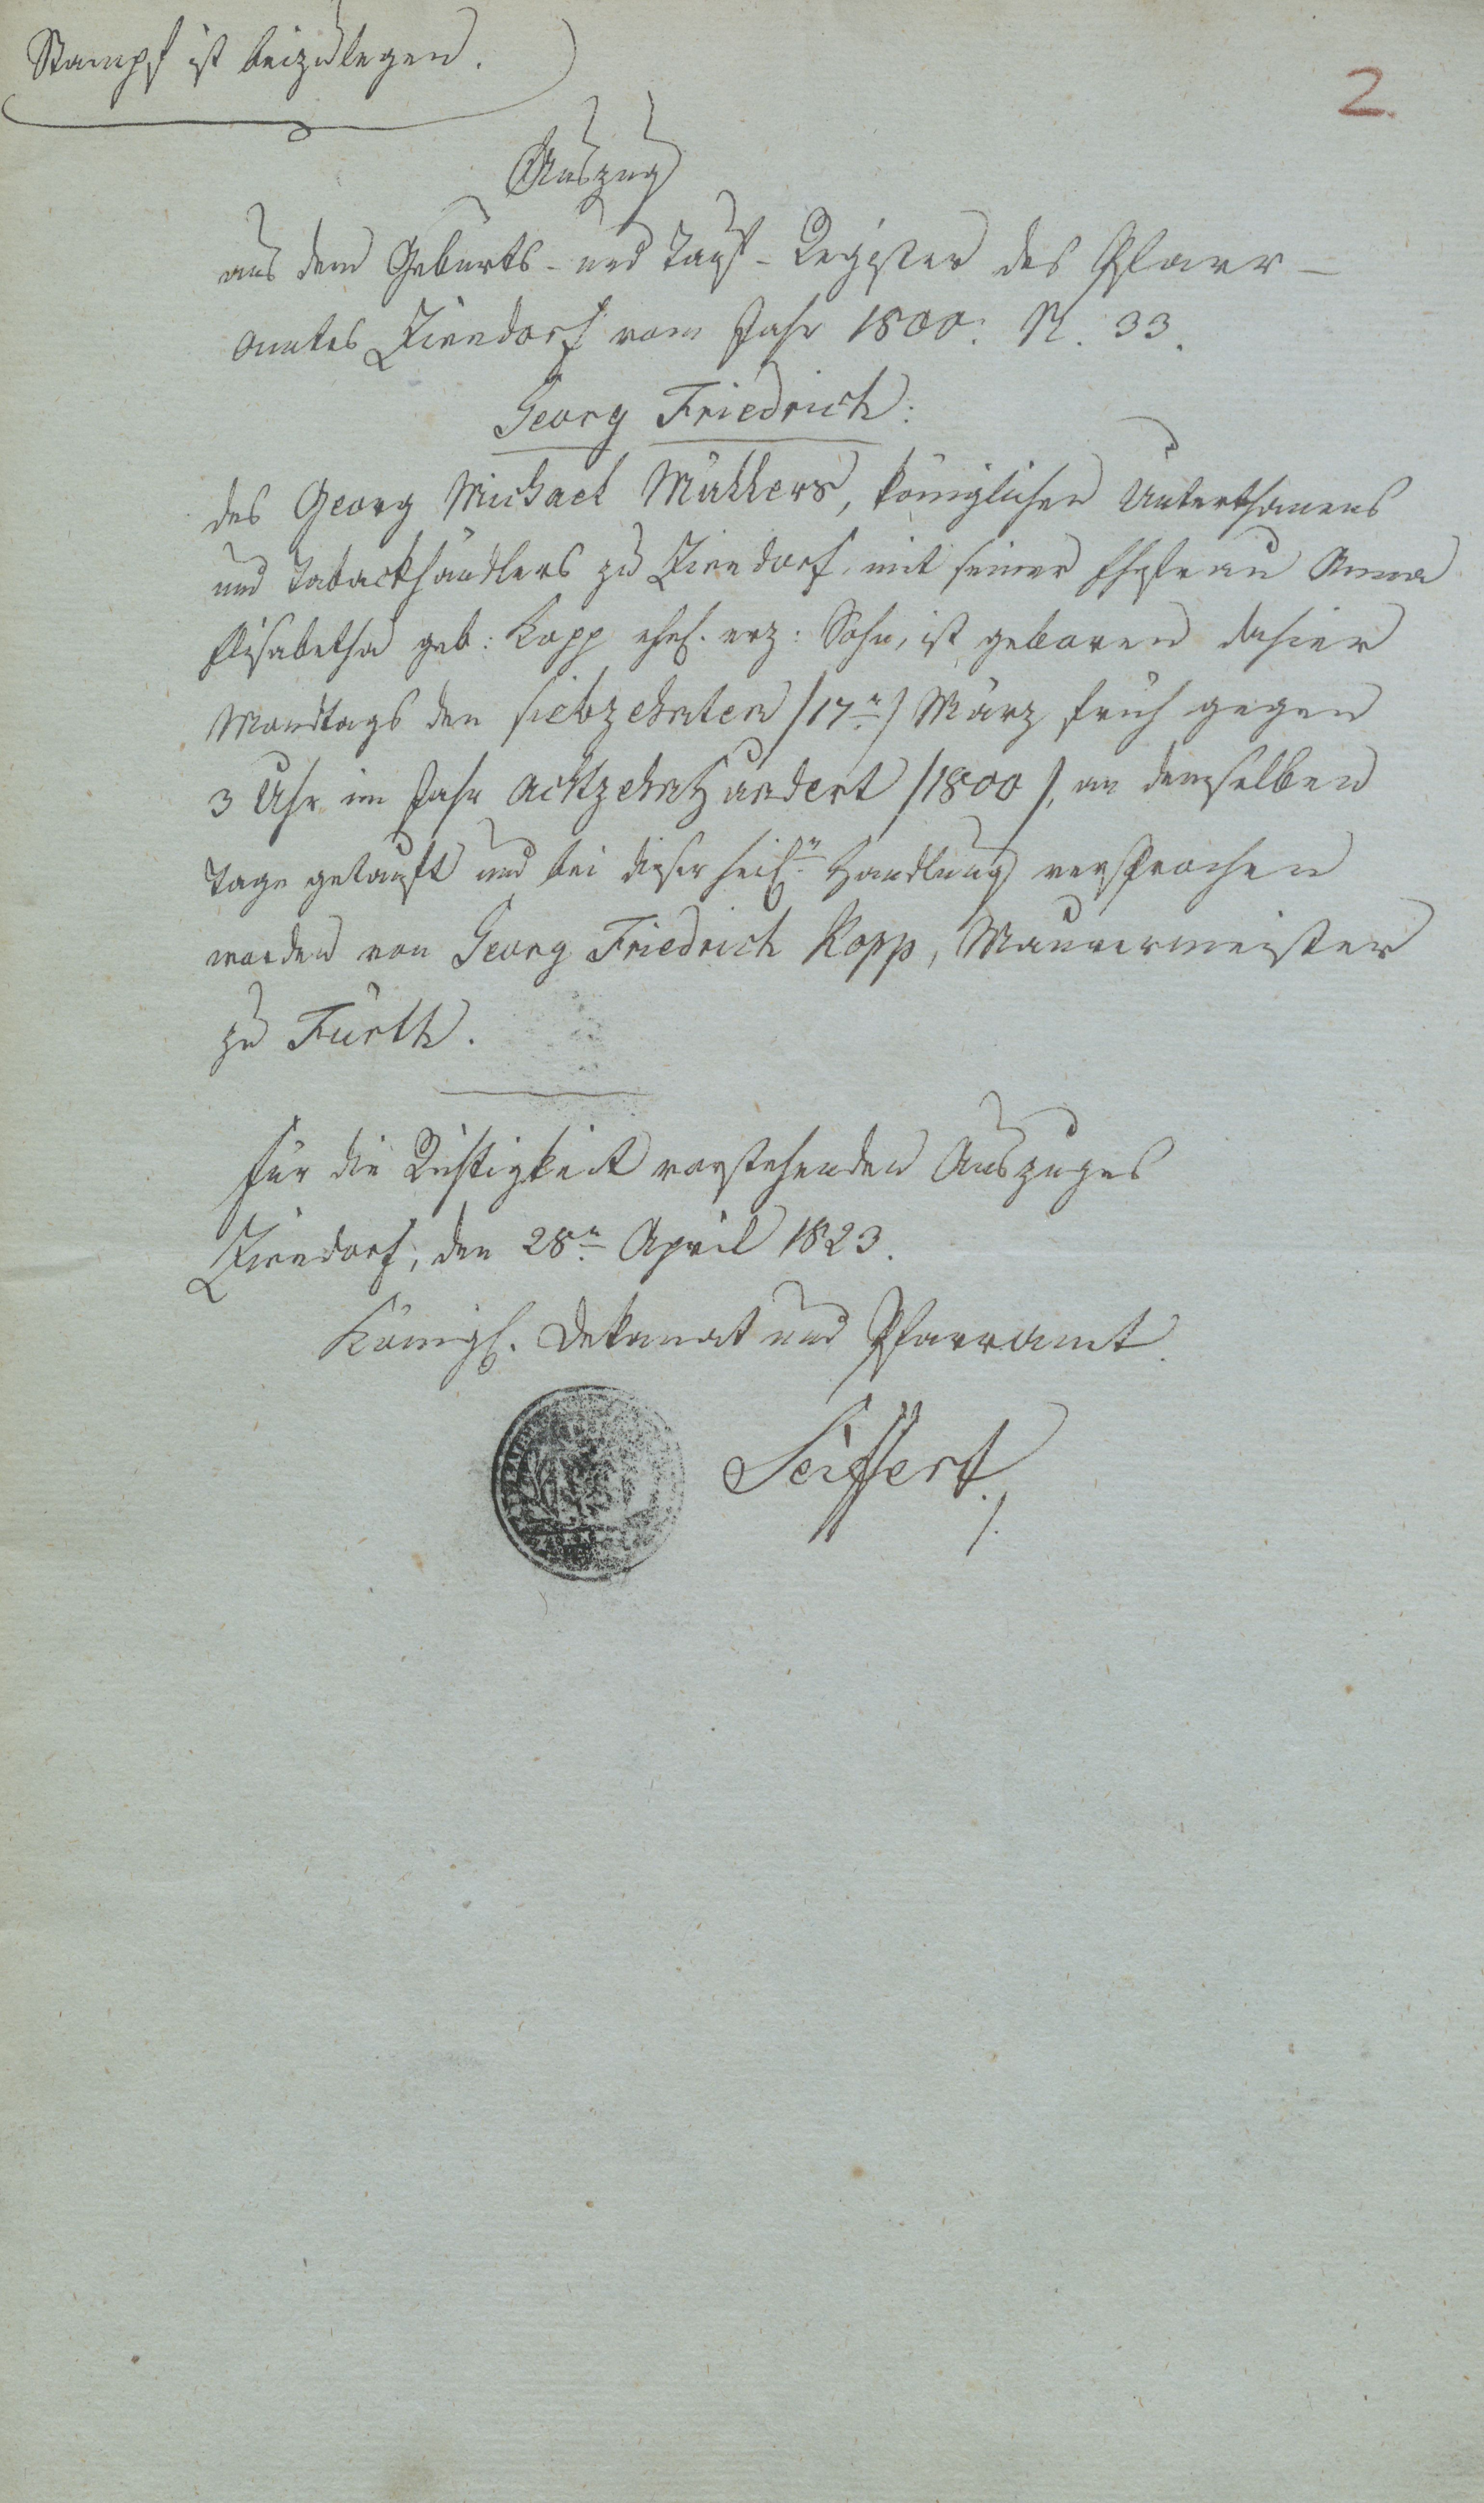 Stempf ist beizulegen.
2.
Auszug
aus dem Geburts- und Tauf-Register des Pfarr-
amtes Zirndorf vom Jahr 1800. N. 33.
Georg Friedrich:
des Georg Michael Müllers, königlichen Unterthanens
und Tabackhändlers zu Zirndorf, mit seiner Ehefrau Anna
Elisabetha geb: Kopp ehel. erz: Sohn, ist geboren dahier
Mondtags den siebzehnten /17n/ März früh gegen
3 Uhr im Jahr achtzehnhundert /1800/, an demselben
Tage getauft und bei dieser heil.n Handlung versprochen
worden von Georg Friedrich Kopp, Maurermeister
zu Fürth.
Für die Richtigkeit vorstehenden Auszuges
Zirndorf, den 28n April 1823.
Königl. Dekanat und Pfarramt.
Seiffert